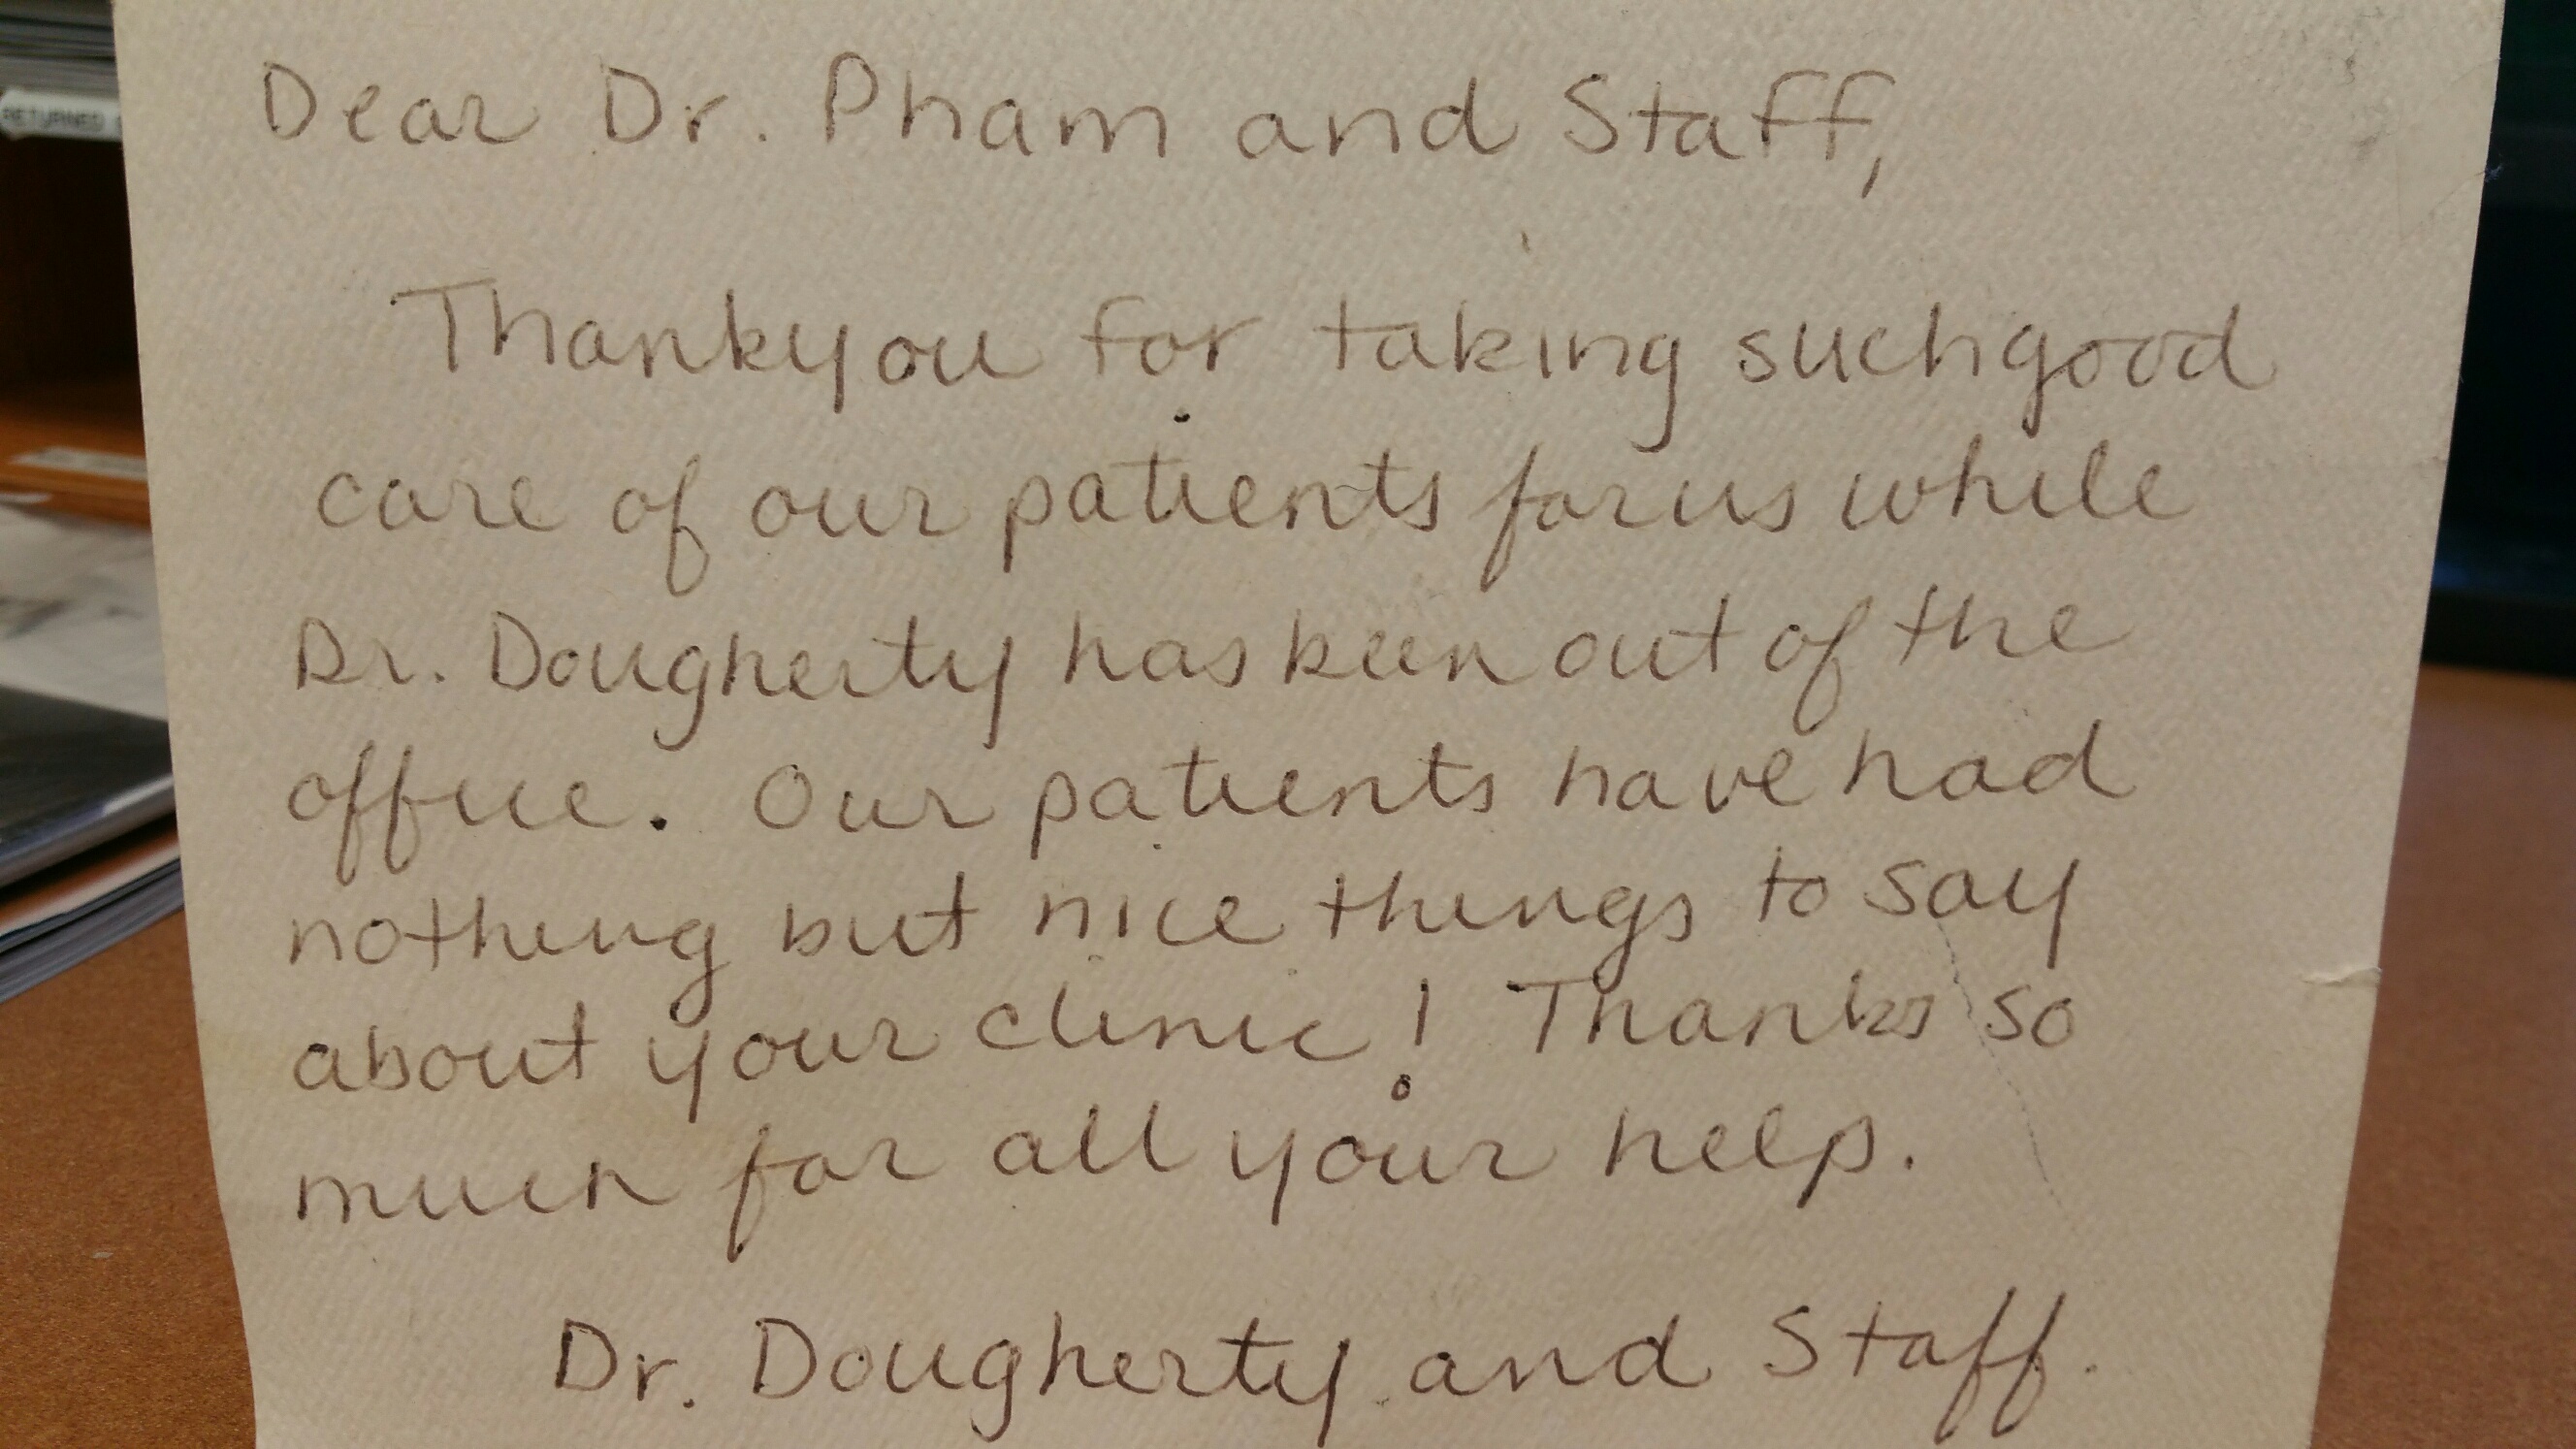 RETURNED
Dear Dr. Pham and Staff,
Thankyou for taking such good
care of our patients for us while
Dr. Dougherty has been out of the
office. Our patients have had
nothing but nice things to say
about your clinic! Thanks so
much for all your help.
Dr. Dougherty and Staff.